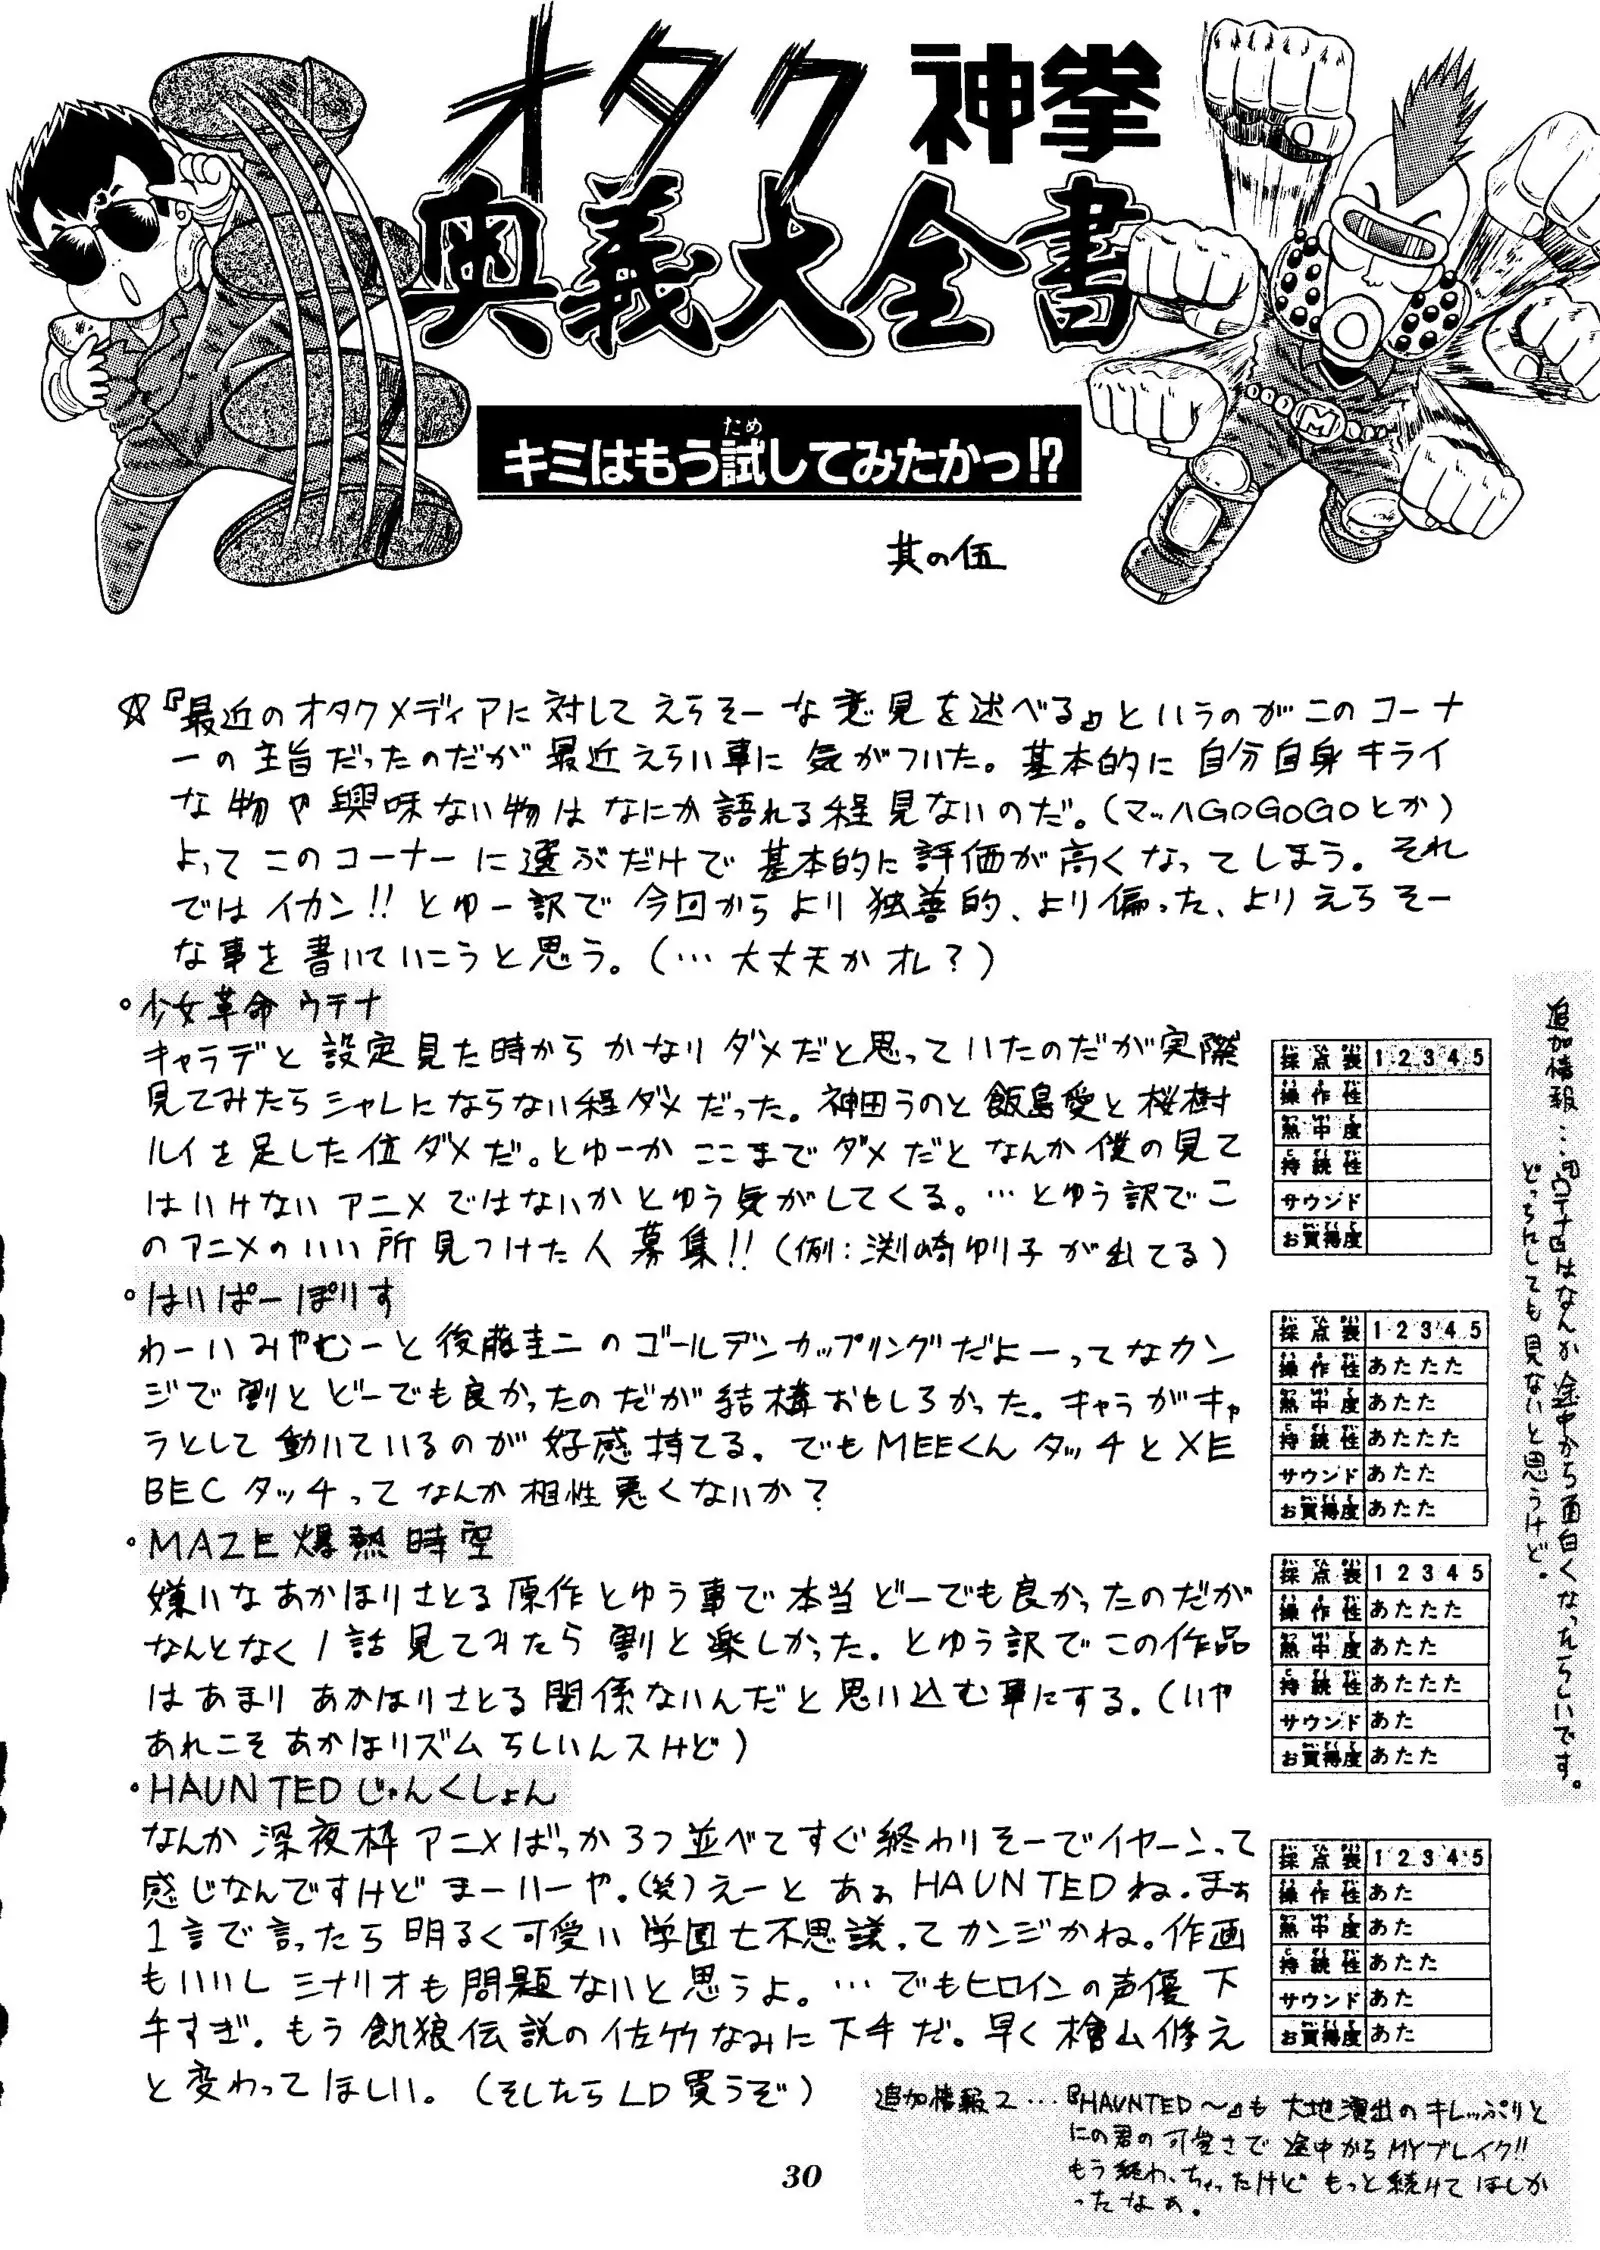 オタク神拳
奥義大全書
ため
キミはもう試してみたかっ!?
其の伍
☆『最近のオタクメディアに対してえらそーな意見を述べる』というのがこのコーナ
ーの主旨だったのだが最近えらい事に気がついた。基本的に自分自身キライ
な物や興味ない物はなにか語れる程見ないのだ。(マッハGOGOGOとか)
よってこのコーナーに選ぶだけで基本的に評価が高くなってしまう。それ
ではイカン!!とゆー訳で今回からより独善的、より偏った、よりえらそー
な事を書いていこうと思う。(…大丈夫かオレ?)
・少女革命ウテナ
キャラデと設定見た時からかなりダメだと思っていたのだが実際
見てみたらシャレにならない程ダメだった。神田うのと飯島愛と桜樹
ルイを足した位ダメだ。とゆーかここまでダメだとなんか僕の見て
はいけないアニメではないかとゆう気がしてくる。…とゆう訳でこ
のアニメのいい所見つけた人募集!!(例:渕崎ゆり子が出てる)
採点表 1 2 3 4 5
操作性
熱中度
持続性
サウンド
お買得度
・はいぱーぽりす
わーいみやむーと後藤圭二のゴールデンカップリングだよーってなカン
ジで割とどーでも良かったのだが結構おもしろかった。キャラがキャ
ラとして動いているのが好感持てる。でもMEEくんタッチとXE
BECタッチってなんか相性悪くないか?
採点表 1 2 3 4 5
操作性 あたたた
熱中度 あたた
持続性 あたたた
サウンド あたた
お買得度 あたた
・MAZE爆熱時空
嫌いなあかほりさとる原作とゆう事で本当どーでも良かったのだが
なんとなく1話見てみたら割と楽しかった。とゆう訳でこの作品
はあまりあかほりさとる関係ないんだと思い込む事にする。(いや
あれこそあかほリズムらしいんスけど)
採点表 1 2 3 4 5
操作性 あたたた
熱中度 あたた
持続性 あたたた
サウンド あた
お買得度 あたた
・HAUNTEDじゃんくしょん
なんか深夜枠アニメばっか3つ並べてすぐ終わりそーでイヤーンって
感じなんですけどまーいーや。(笑)えーとあぁHAUNTEDね。まぁ
1言で言ったら明るく可愛い学園七不思議ってカンジかね。作画
もいいしシナリオも問題ないと思うよ。…でもヒロインの声優下
手すぎ。もう餓狼伝説の佐竹なみに下手だ。早く檜山修え
と変わってほしい。(そしたらLD買うぞ)
採点表 1 2 3 4 5
操作性 あた
熱中度 あた
持続性 あたた
サウンド あた
お買得度 あた
追加情報…『ウテナ』はなんか途中から面白くなったらしいです。
どっちにしても見ないと思うけど。
追加情報2…『HAUNTED〜』も大地演出のキレっぷりと
にの君の可愛さで途中からMYブレイク!!
もう終わっちゃったけどもっと続けてほしか
ったなぁ。
30